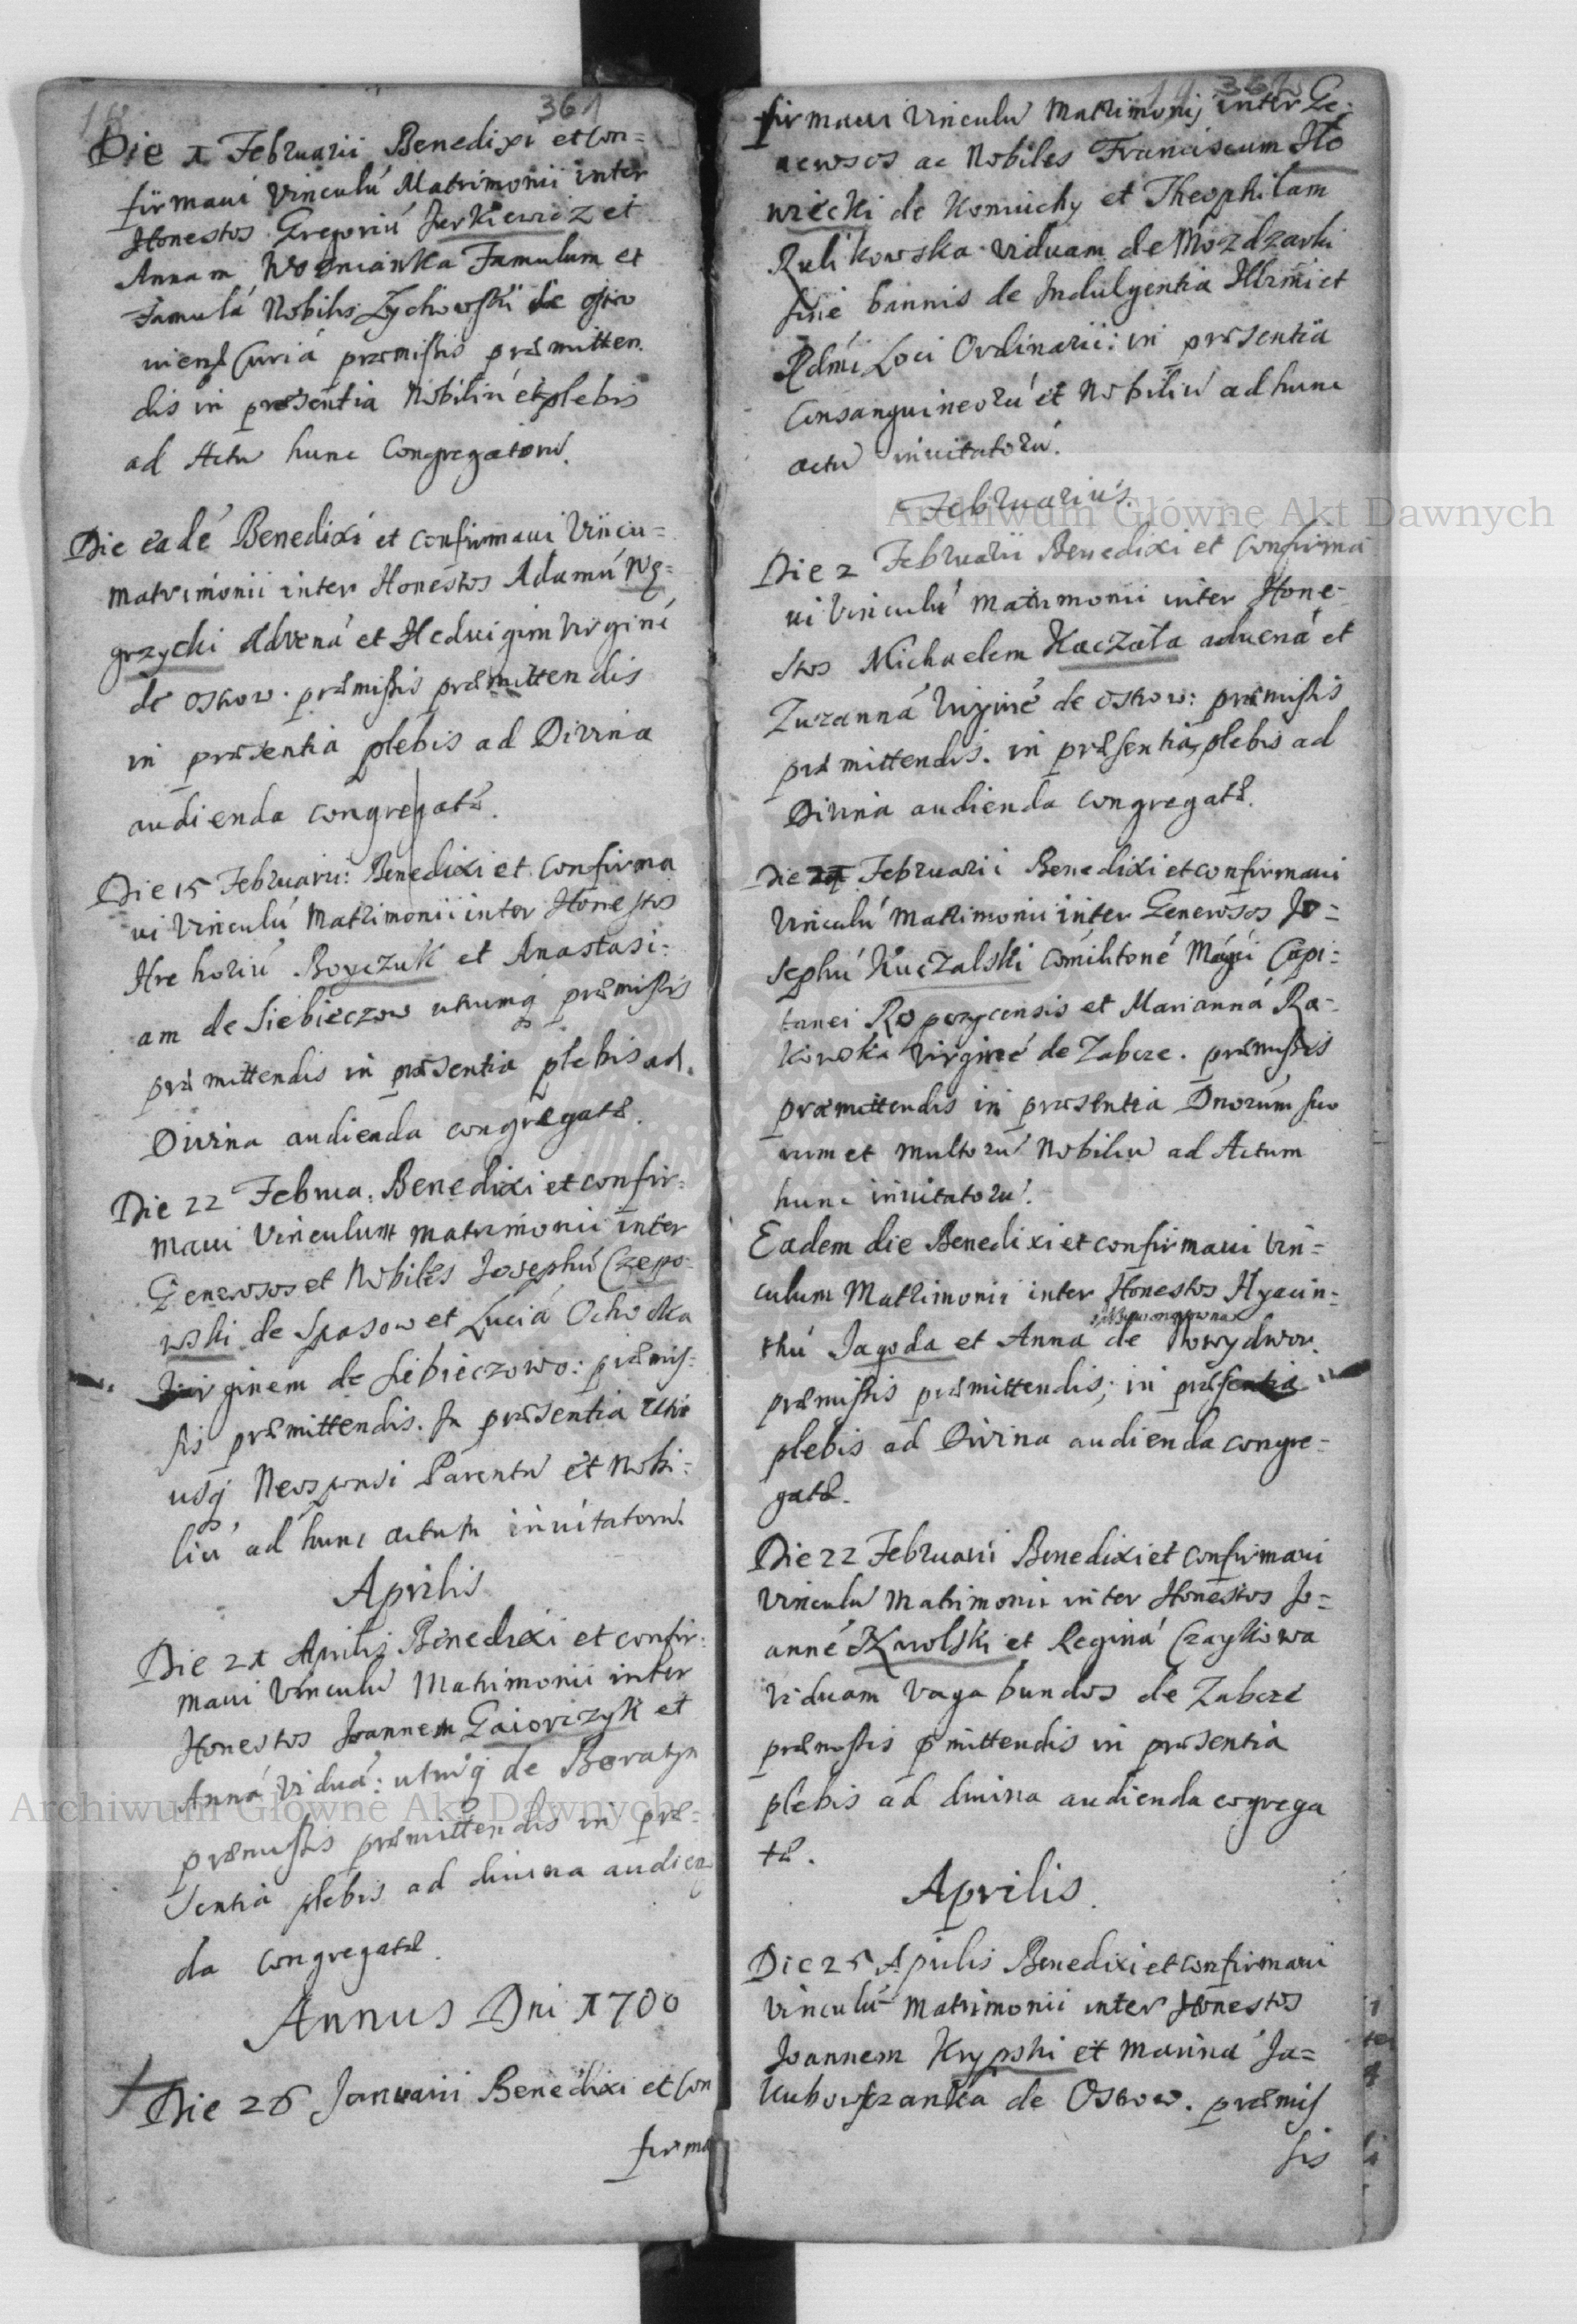 18
361
Die 1 Februarii Benedixi et Con=
firmaui Vinculú Matrimonii inter
Honestos Gregoriú Jerkiewicz et
Annam Wozniānka Famulum et
Famulá Nobilis Zychowskii de ostro
uiens Curiá præmissis præmitten.
dis in præsentia Nobiliú et plebis
ad Actú hunc Congregatorú.
Die eadé Benedixi et confirmaui Vincu=
Matrimonii inter Honestos Adamú Wę=
grzycki Advená et Heduigim Virginé
de Ostrow. præmissis præmittendis
in præsentia plebis ad Divina
audienda congregatæ.
Die 15 Februarii: Benedixi et confirma
ui Vinculú Matrimonii inter Honestos
Hrehoriú Boyczuk et Anastasi:
am de Siebieczow utrumq præmissis
præmittendis in præsentia plebis ad
Divina audienda congregatæ.
Die 22 Februa: Benedixi et confir=
maui Vinculum matrimonii inter
Generosos et Nobiles Josephú Czepo=
wski de Spasow et Luciá Ochocka
Virginem de Siebieczowo: præmis=
sis præmittendis. In præsentia utri
usq Neosponsi Parentú et Nobi=
liú ad hunc actum inuitatorú.
Aprilis
Die 21 Aprilis Benedixi et confir=
maui Vinculú Matrimonii inter
Honestos Joannem Gaiorczyk et
Anná viduá: utruq de Boratyn
præmissis præmittendis in præ=
sentia plebis ad diuina audien
da congregatæ.
Annus Dni 1700
Die 26 Januarii Benedixi et Con
firma
19 362
firmaui Vinculú Matrimonij inter Ge:
nerosos ac Nobiles Franciscum Ilo
wiecki de Koniuchy et Theophilam
Rulikowska viduam de Mozdzarki
sine bannis de Indulgentia Illrmi et
Rdmi Loci Ordinarii: in præsentia
Consanguineorú et Nobiliú ad hunc
actú inuitatorú.
Februarius.
Die 2 Februarii Benedixi et Confirma
ui Vinculú Matrimonii inter Hone=
stos Michaelem Kaczała aduená et
Zuzanná Virginé de Ostrow: præmissis
præmittendis. in præsentia plebis ad
Diuina audienda congregatæ.
Die 21 Februarii Benedixi et confirmaui
Vinculú Matrimonii inter Generosos Jo=
sephú Kuczalski Comilitoné Magni Capi=
tanei Ropczycensis et Marianná Ra=
kowska Virginé de Zabcze. præmissis
præmittendis in præsentia Dnorum suo
rum et multorú Nobiliú ad Actum
hunc inuitatorú.
Eadem die Benedixi et confirmaui Vin=
culum Matrimonii inter Honestos Hyacin=
thú Jagoda et Anna de Nowydwor.
præmissis præmittendis, in præsentia
plebis ad Divina audienda congre=
gatæ.
Die 22 Februarii Benedixi et confirmaui
Vinculú Matrimonii inter Honestos Jo=
anné Karolski et Reginá Czaykowa
viduam vagabundos de Zabcze
præmissis pmittendis in præsentia
plebis ad diuina audienda cogrega
tæ.
Aprilis.
Die 25 Aprilis Benedixi et confirmaui
Vinculú Matrimonii inter Honestos
Joannem Krypski et Mariná Ja=
kubowszanka de Ostrow. præmis
sis
Archiwum Główne Akt Dawnych
Archiwum Główne Akt Dawnych